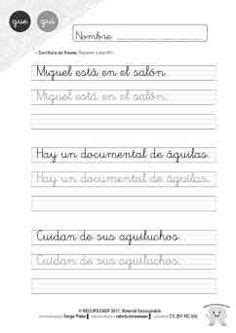 gue gui
Nombre:
Escritura de frases.
Miguel está en el salón.
Miguel está en el salón.
Hay un documental de águilas.
Hay un documental de águilas.
Cuidan de sus aguiluchos.
Cuidan de sus aguiluchos.